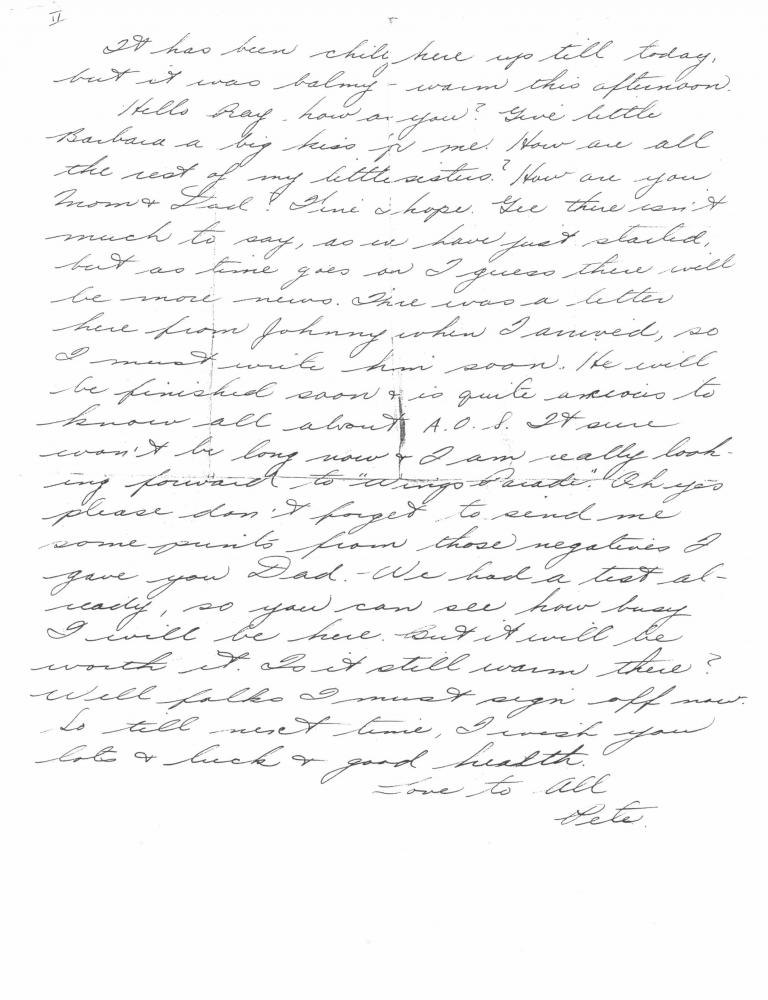 II
It has been chily here up till today,
but it was balmy - warm this afternoon.
Hello Ray, how are you? Give little
Barbara a big kiss for me. How are all
the rest of my little sisters? How are you
Mom & Dad? Fine I hope. Gee there isn't
much to say, as we have just started,
but as time goes on I guess there will
be more news. There was a letter
here from Johnny when I arrived, so
I must write him soon. He will
be finished soon & is quite anxious to
know all about A.O.S. It sure
won't be long now & I am really look-
ing forward to "Wings Parade". Oh yes
please don't forget to send me
some prints from those negatives I
gave you Dad. - We had a test al-
ready, so you can see how busy
I will be here. But it will be
worth it. Is it still warm there?
Well folks I must sign off now.
So till next time, I wish you
lots & luck & good health.
Love to All
Pete.